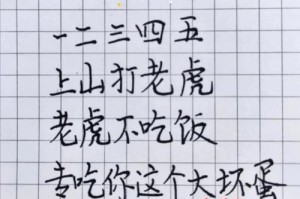 一二三四五
上山打老虎
老虎不吃饭
专吃你这个大坏蛋